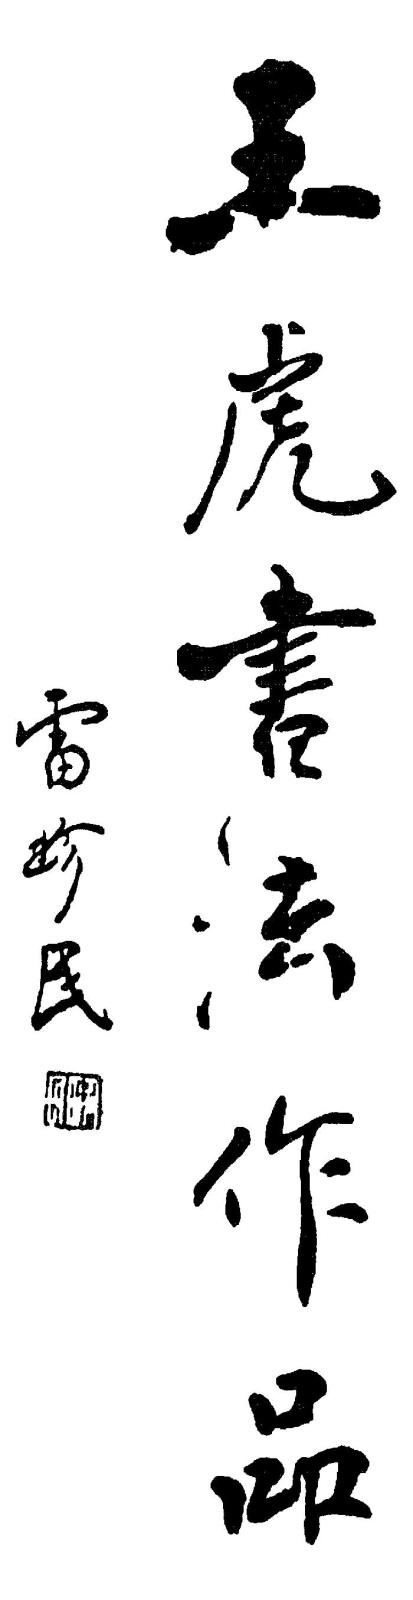 王虎书法作品
雷珍民